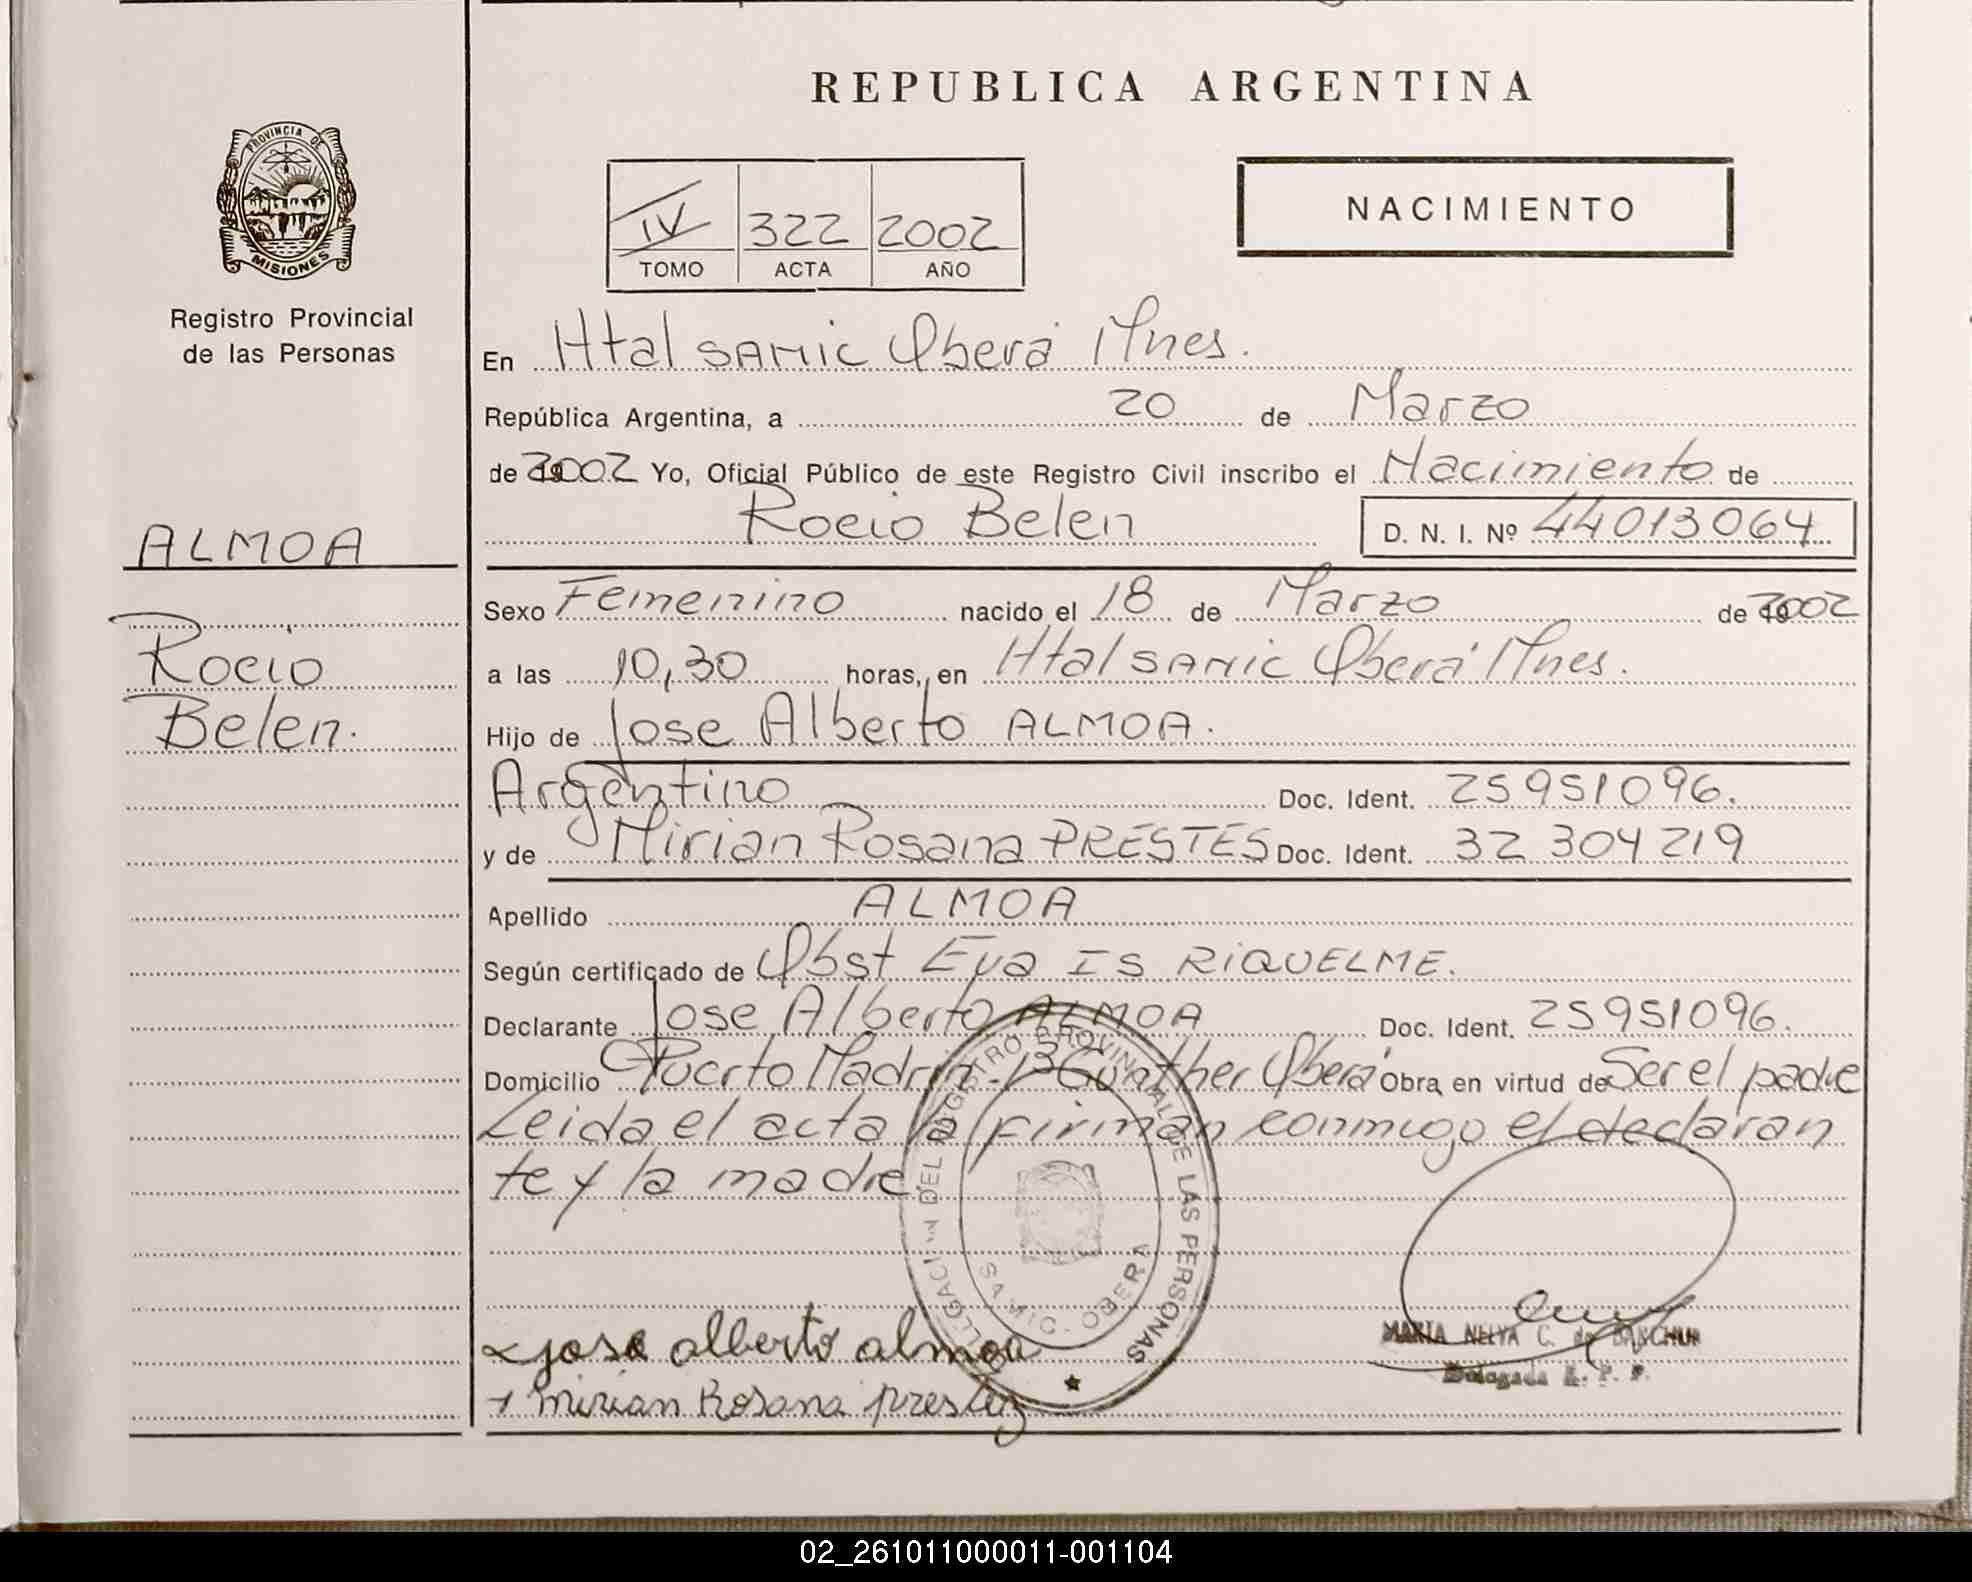 REPUBLICA ARGENTINA
PROVINCIA DE
MISIONES
Registro Provincial
de las Personas
IV 322 2002
TOMO ACTA AÑO
NACIMIENTO
En Htal SAMIC Oberá Mnes.
República Argentina, a 20 de Marzo
de 2002 Yo, Oficial Público de este Registro Civil inscribo el Nacimiento de
Rocio Belen D. N. I. Nº 44013064
ALMOA
Rocio
Belen.
Sexo Femenino nacido el 18 de Marzo de 2002
a las 10,30 horas, en Htal SAMIC Oberá Mnes.
Hijo de Jose Alberto ALMOA.
Argentino Doc. Ident. 25951096.
y de Mirian Rosana PRESTES Doc. Ident. 32 304 219
Apellido ALMOA
Según certificado de Obst Eva IS RIQUELME.
Declarante Jose Alberto ALMOA Doc. Ident. 25951096.
Domicilio Puerto Madrin. Bº Gunther Oberá Obra en virtud de Ser el padre
Leida el acta la firman conmigo el declaran
te y la madre
DEL REGISTRO PROVINCIAL DE LAS PERSONAS
SAMIC - OBERA
jose alberto almoa
MARIA NELYA C. de
Mirian Rosana prestes
Delegada R. P. P.
02_261011000011-001104